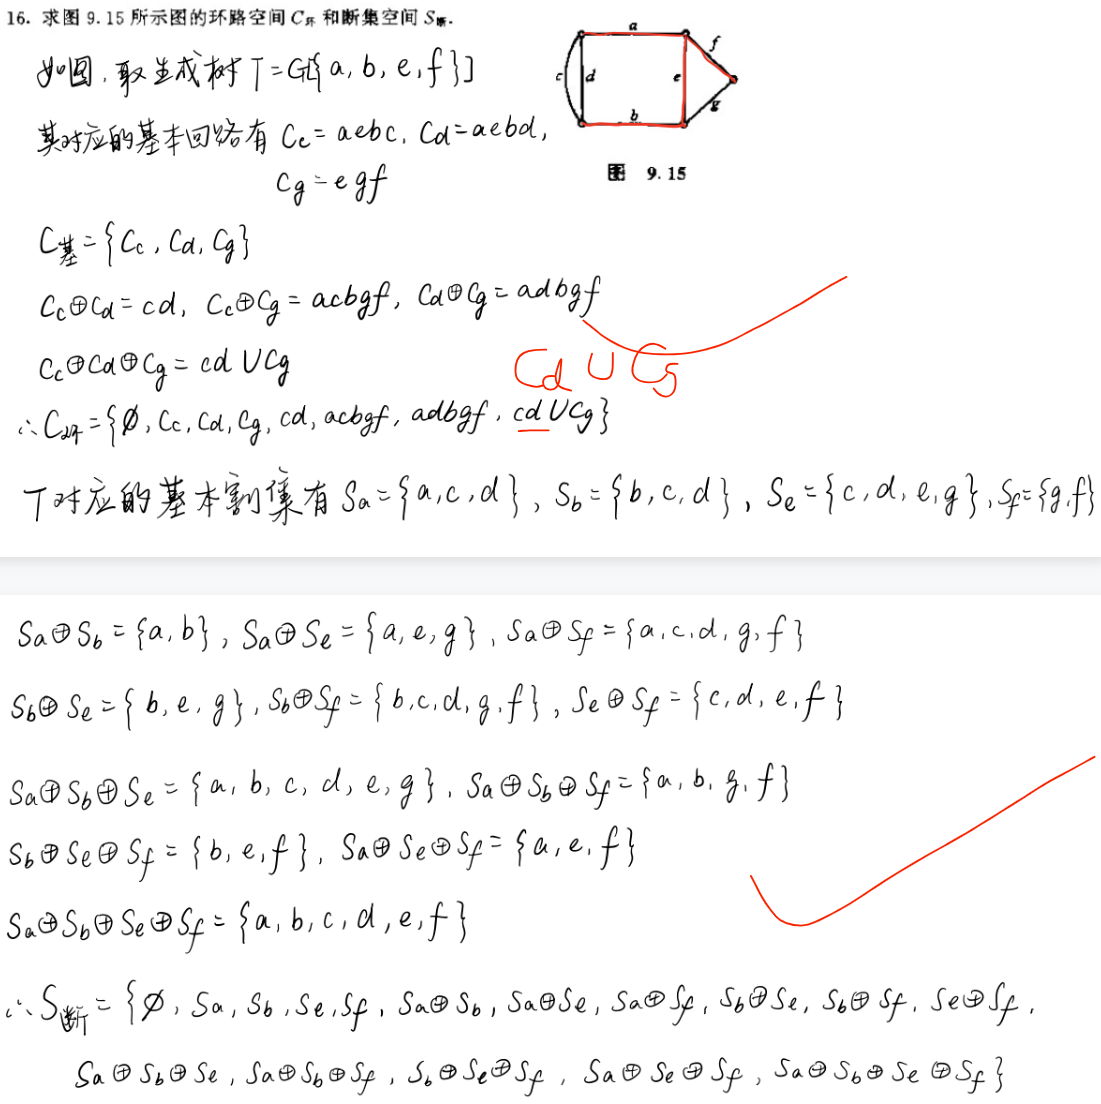 16. 求图 9.15 所示图的环路空间 C环 和断集空间 S断.
a
f
c
d
e
g
b
图 9.15
如图,取生成树 T=G[{a,b,e,f}]
其对应的基本回路有 Cc=aebc, Cd=aebd,
Cg=egf
C基={Cc, Cd, Cg}
Cc⊕Cd=cd, Cc⊕Cg=acbgf, Cd⊕Cg=adbgf
Cc⊕Cd⊕Cg=cd∪Cg
Cd∪Cg
∴C环={∅, Cc, Cd, Cg, cd, acbgf, adbgf, cd∪Cg}
T对应的基本割集有 Sa={a,c,d}, Sb={b,c,d}, Se={c,d,e,g}, Sf={g,f}
Sa⊕Sb={a,b}, Sa⊕Se={a,e,g}, Sa⊕Sf={a,c,d,g,f}
Sb⊕Se={b,e,g}, Sb⊕Sf={b,c,d,g,f}, Se⊕Sf={c,d,e,f}
Sa⊕Sb⊕Se={a,b,c,d,e,g}, Sa⊕Sb⊕Sf={a,b,g,f}
Sb⊕Se⊕Sf={b,e,f}, Sa⊕Se⊕Sf={a,e,f}
Sa⊕Sb⊕Se⊕Sf={a,b,c,d,e,f}
∴S断={∅, Sa, Sb, Se, Sf, Sa⊕Sb, Sa⊕Se, Sa⊕Sf, Sb⊕Se, Sb⊕Sf, Se⊕Sf,
Sa⊕Sb⊕Se, Sa⊕Sb⊕Sf, Sb⊕Se⊕Sf, Sa⊕Se⊕Sf, Sa⊕Sb⊕Se⊕Sf}